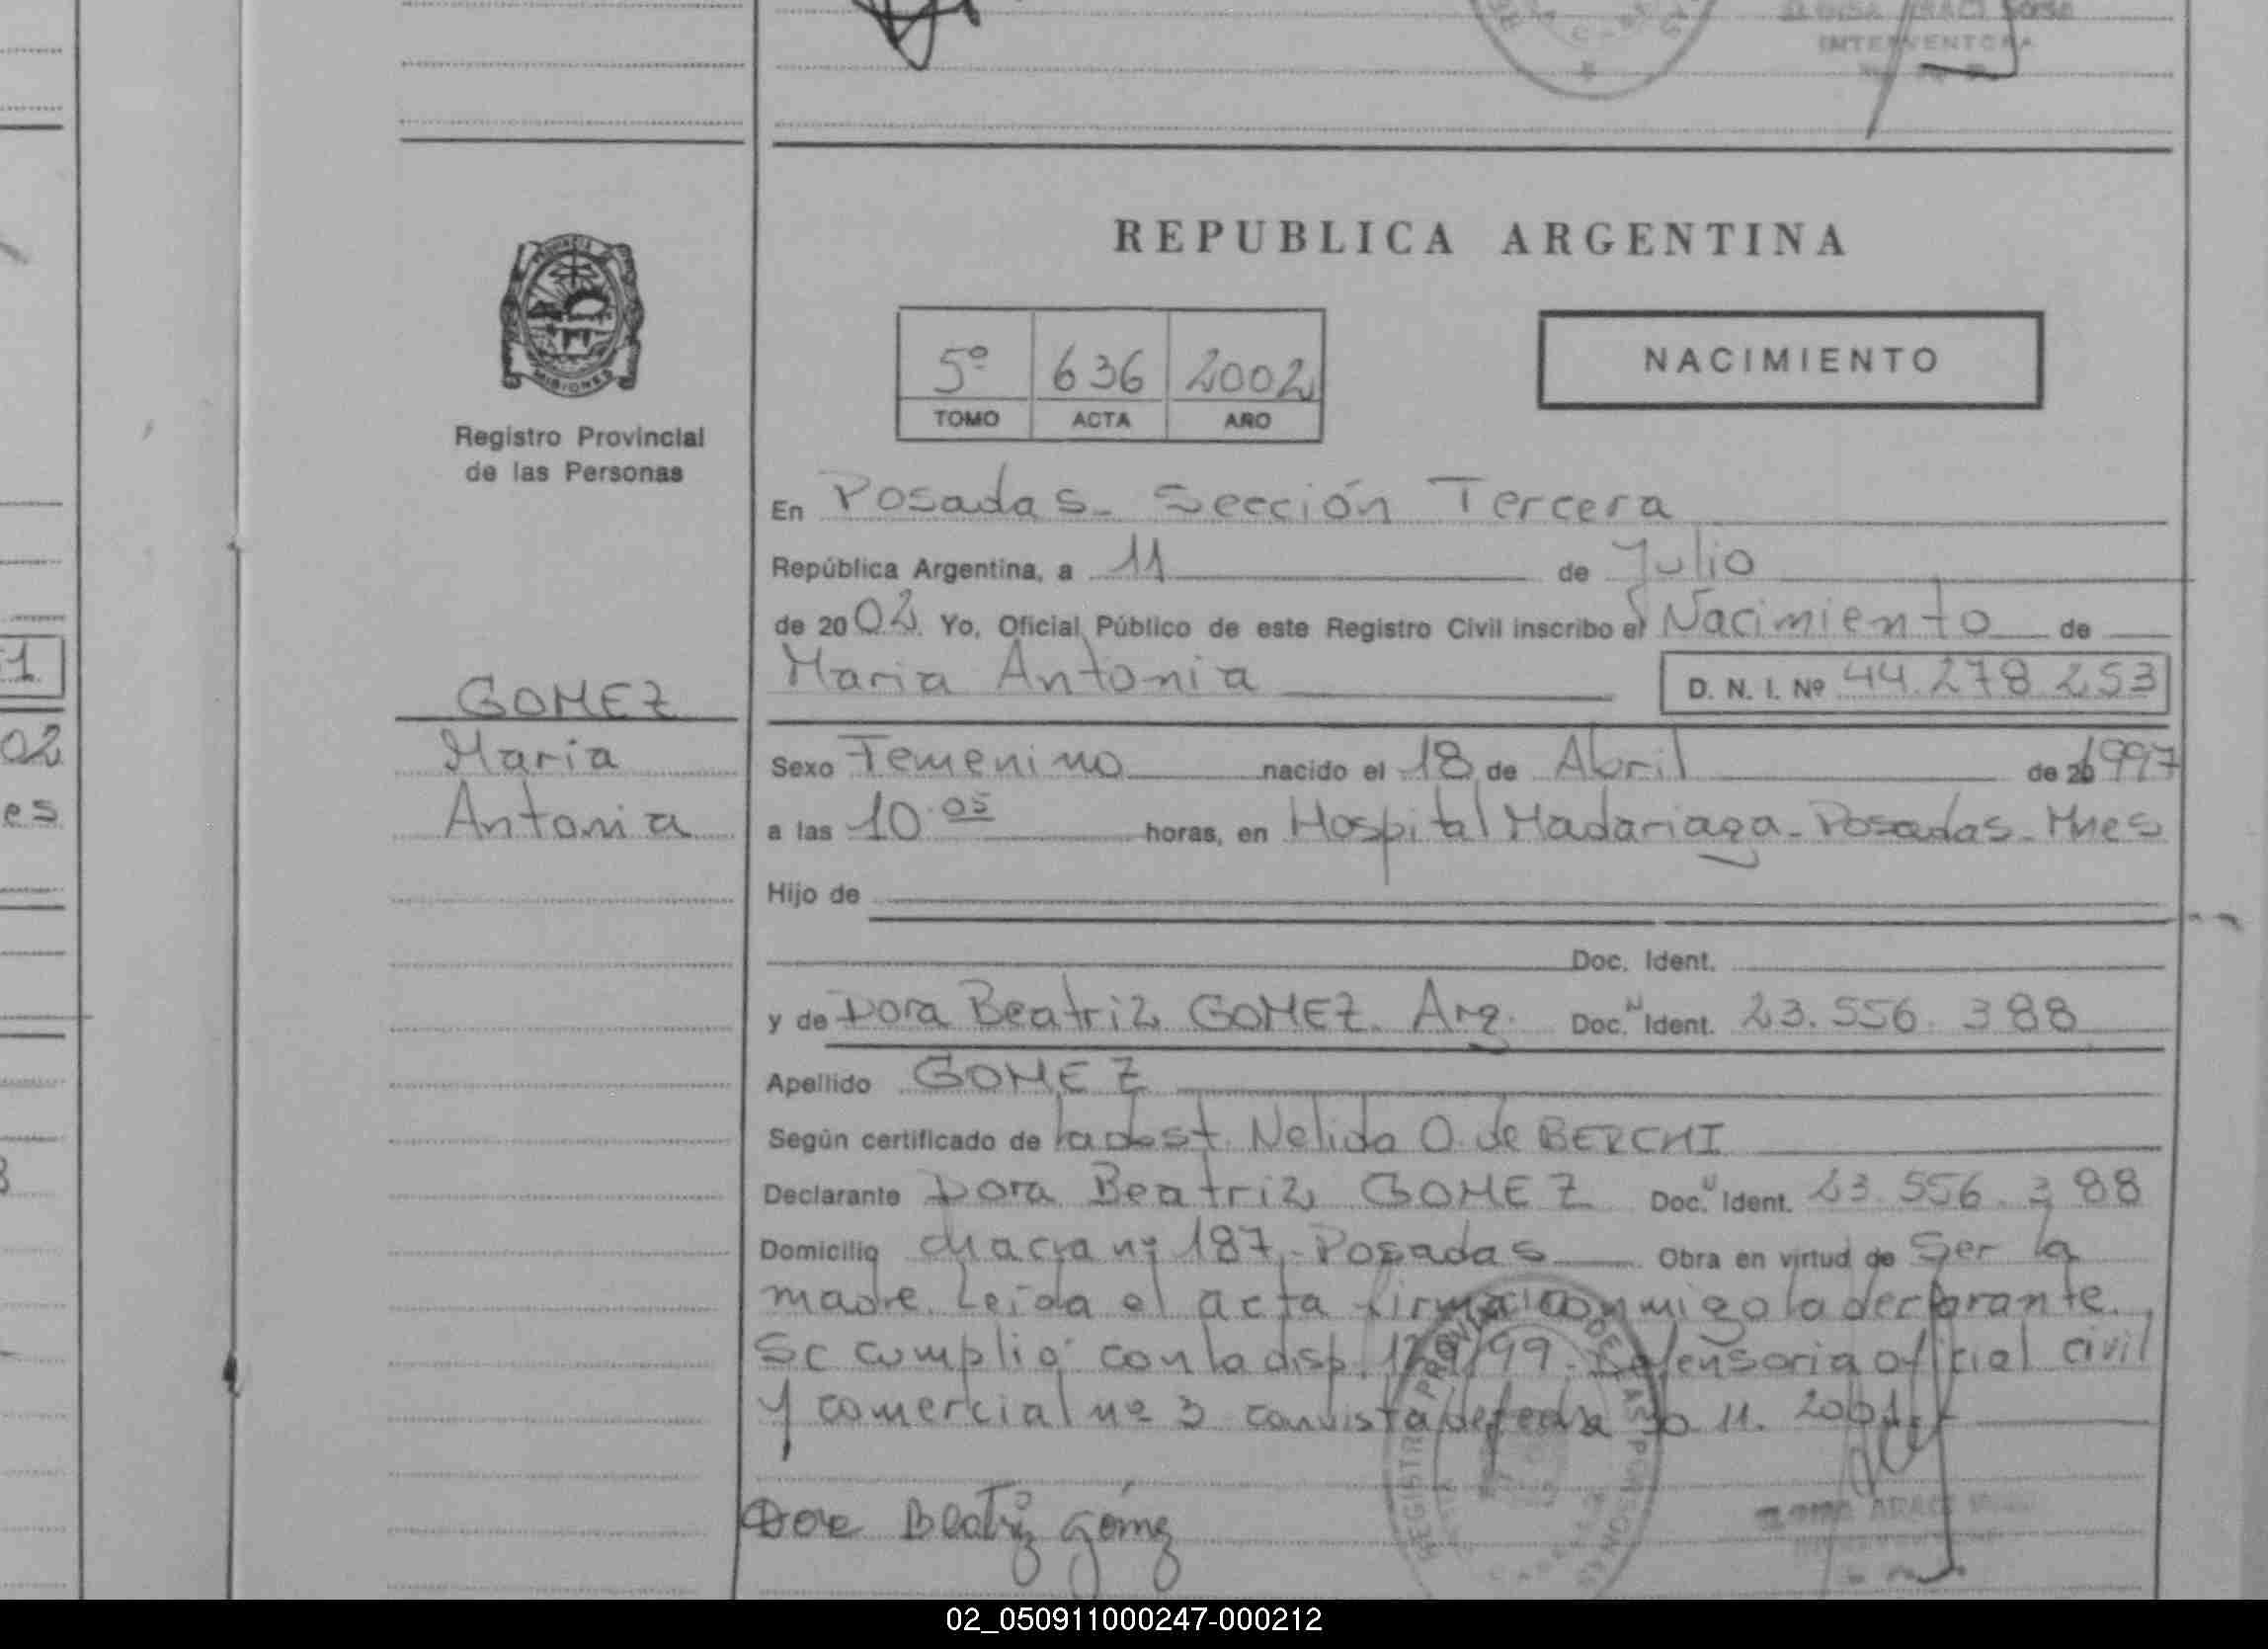 INTERVENTORA
REPUBLICA ARGENTINA
5º 636 2002
TOMO ACTA AÑO
NACIMIENTO
MISIONES
Registro Provincial
de las Personas
En Posadas - Sección Tercera
República Argentina, a 11 de Julio
de 2002. Yo, Oficial Público de este Registro Civil inscribo el Nacimiento de
Maria Antonia D. N. I. Nº 44.278.253
GOMEZ
Maria
Antonia
Sexo Femenino nacido el 18 de Abril de 1997
a las 10.05 horas, en Hospital Madariaga - Posadas - Mnes
Hijo de
Doc. Ident.
y de Dora Beatriz GOMEZ Arg. Doc. N Ident. 23.556.388
Apellido GOMEZ
Según certificado de la obst. Nelida O. de BERCHI
Declarante Dora Beatriz GOMEZ Doc. N Ident. 23.556.388
Domicilio chacra nº 187 - Posadas Obra en virtud de Ser la
madre. Leida el acta firma conmigo la declarante.
Se cumplio con la disp. /99. Defensoria oficial civil
y comercial nº 3 con vista de fecha 30.11.2001.
Dora Beatriz Gómez
1
02
es
02_050911000247-000212